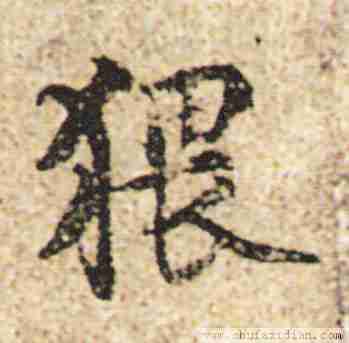 猥
www.shufazidian.com